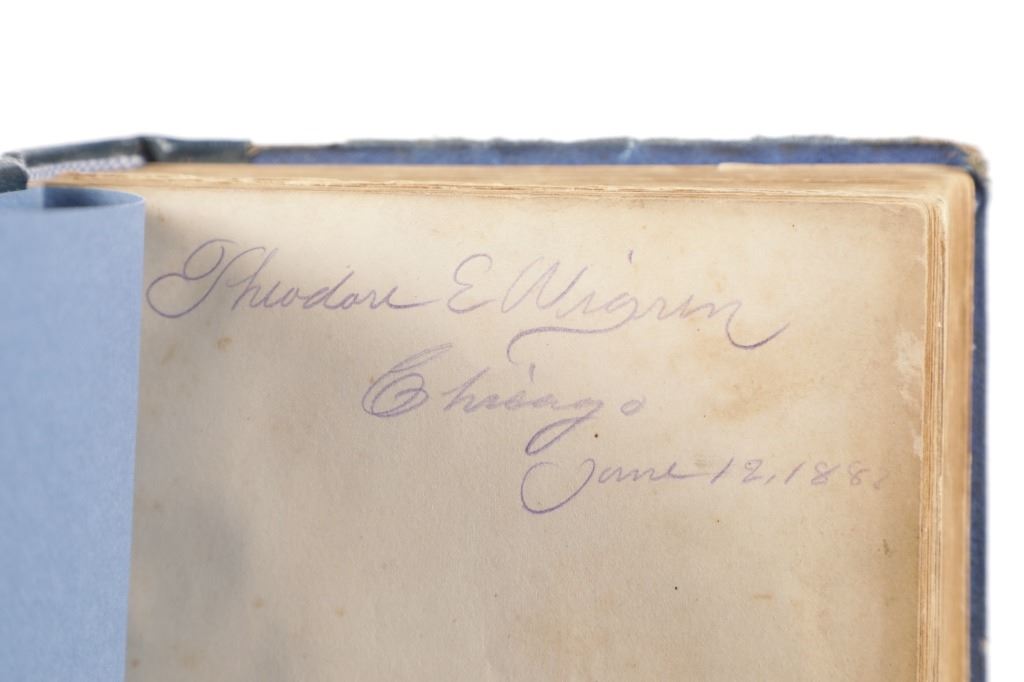 Theodore E Wigren
Chicago
June 12, 1882